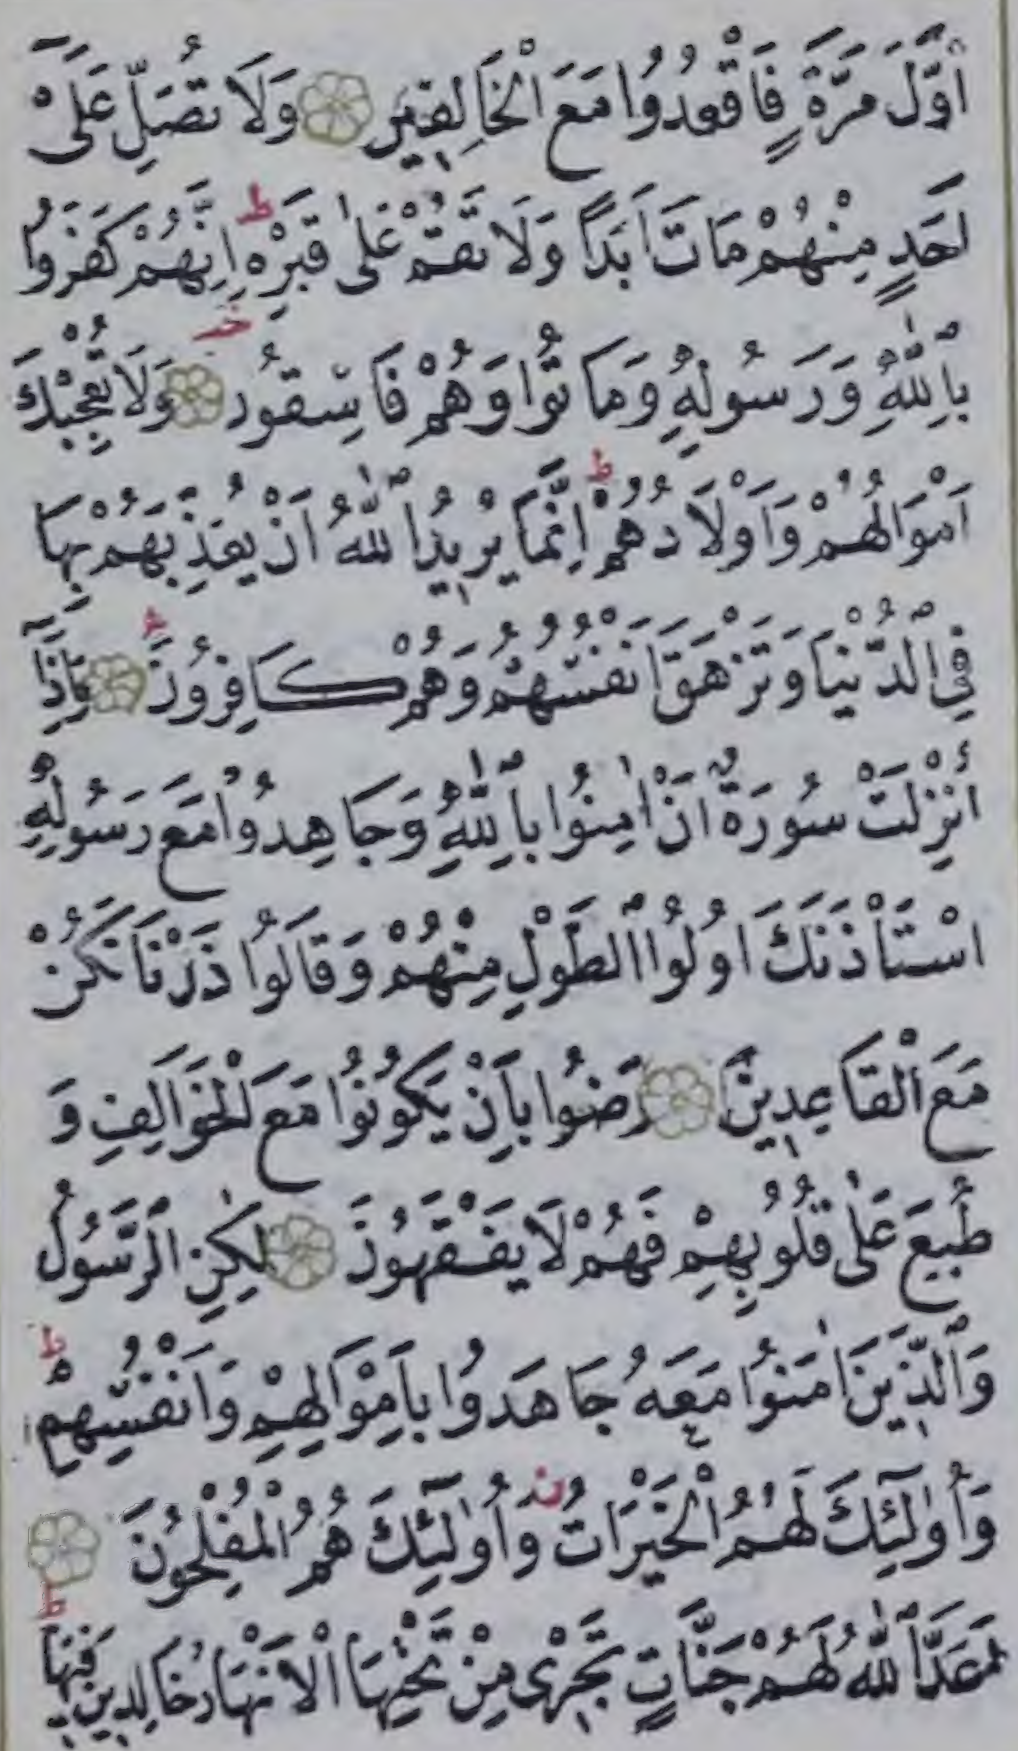 اَوَّلَ مَرَّةٍ فَاقْعُدُوا مَعَ الْخَالِفِينَ وَلَا تُصَلِّ عَلٰٓى
اَحَدٍ مِنْهُمْ مَاتَ اَبَدًا وَلَا تَقُمْ عَلٰى قَبْرِهِ ط اِنَّهُمْ كَفَرُوا
بِاللّٰهِ وَرَسُولِهِ وَمَاتُوا وَهُمْ فَاسِقُونَ وَلَا تُعْجِبْكَ
اَمْوَالُهُمْ وَاَوْلَادُهُمْ ط اِنَّمَا يُرِيدُ اللّٰهُ اَنْ يُعَذِّبَهُمْ بِهَا
فِي الدُّنْيَا وَتَزْهَقَ اَنْفُسُهُمْ وَهُمْ كَافِرُونَ وَاِذَٓا
اُنْزِلَتْ سُورَةٌ اَنْ اٰمِنُوا بِاللّٰهِ وَجَاهِدُوا مَعَ رَسُولِهِ
اسْتَأْذَنَكَ اُولُوا الطَّوْلِ مِنْهُمْ وَقَالُوا ذَرْنَا نَكُنْ
مَعَ الْقَاعِدِينَ رَضُوا بِاَنْ يَكُونُوا مَعَ الْخَوَالِفِ وَ
طُبِعَ عَلٰى قُلُوبِهِمْ فَهُمْ لَا يَفْقَهُونَ لٰكِنِ الرَّسُولُ
وَالَّذِينَ اٰمَنُوا مَعَهُ جَاهَدُوا بِاَمْوَالِهِمْ وَاَنْفُسِهِمْ ط
وَاُولٰٓئِكَ لَهُمُ الْخَيْرَاتُ ز وَاُولٰٓئِكَ هُمُ الْمُفْلِحُونَ
اَعَدَّ اللّٰهُ لَهُمْ جَنَّاتٍ تَجْرِى مِنْ تَحْتِهَا الْاَنْهَارُ خَالِدِينَ فِيهَا ط